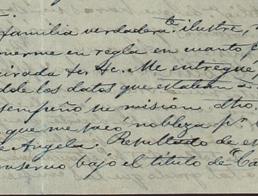 familia verdaderamte. ilustre,
nerme en regla en cuanto
irada &c &c. Me entregué,
dole los datos que estaban
sempeñó su mision. dho.
que me sacó nobleza pr.
Angela. Resultado de es
bajo el titulo de Ca